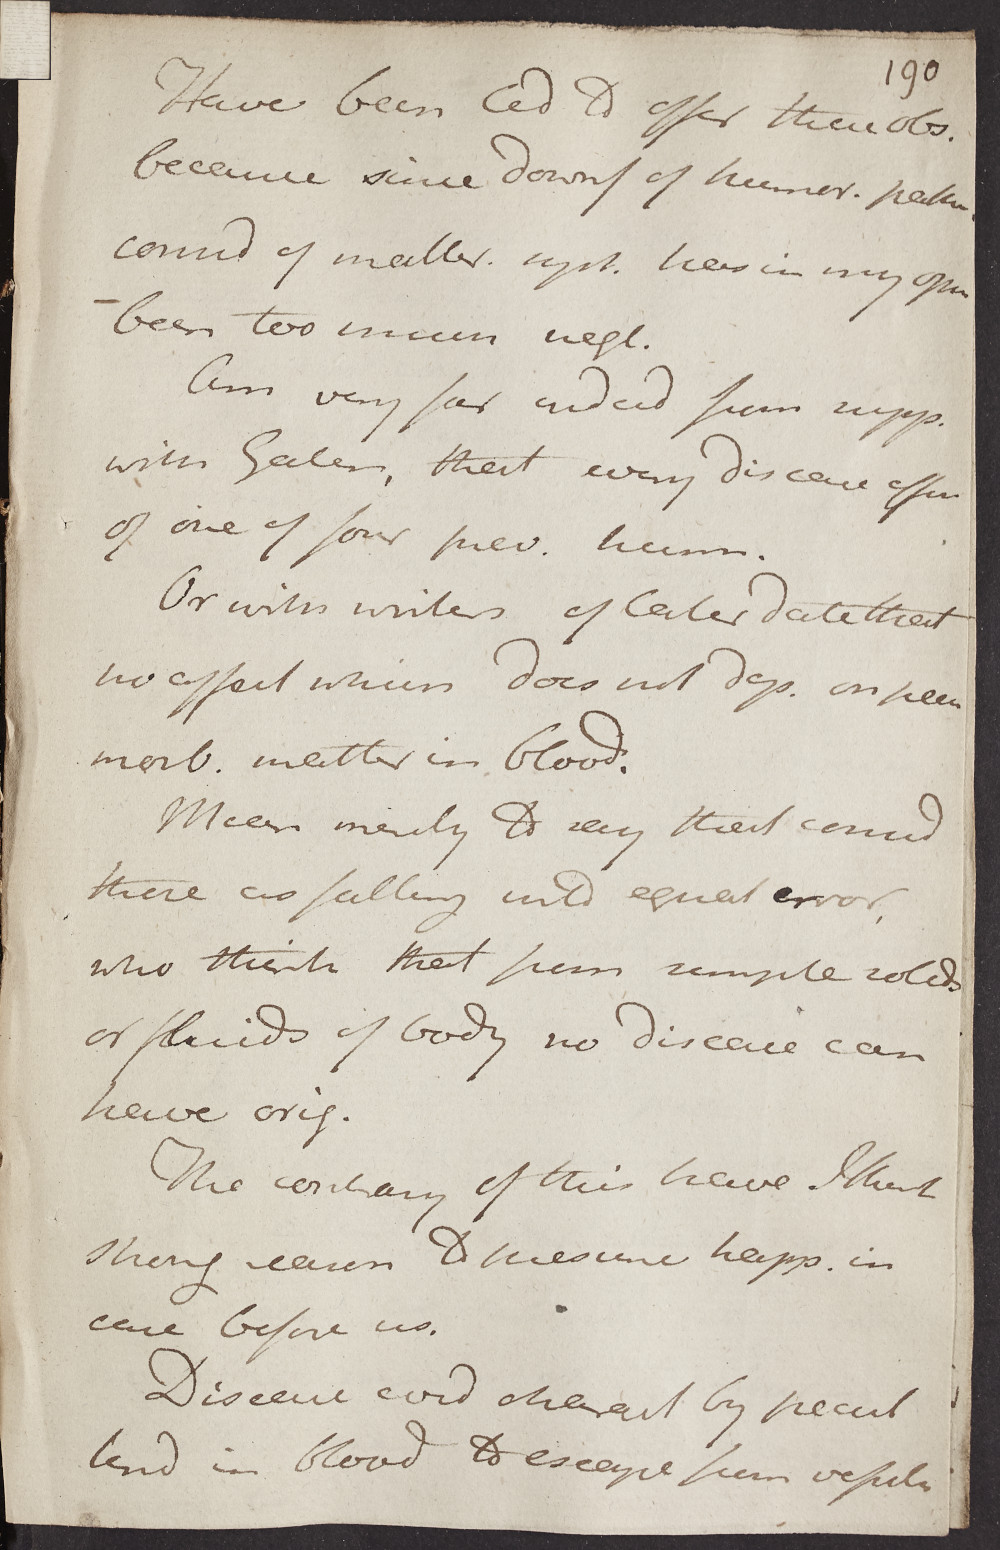 190
Have been led to offer these obs.
because since downf of humor. path.
consid of matter. syst. has in my opin
been too much negl.
Am very far indeed from supp.
with Galen, that every disease affn
of one of four prev. humn.
Or with writers of later date that
no affect which does not dep. on pecu
morb. matter in blood.
Mean merely to say that consid
those as falling into equal error,
who think that from simple solids
or fluids of body no disease can
have orig.
The contrary of this have I think
strong reason to presume happ. in
case before us.
Disease evid charact by pecul
tend in blood to escape from vessels